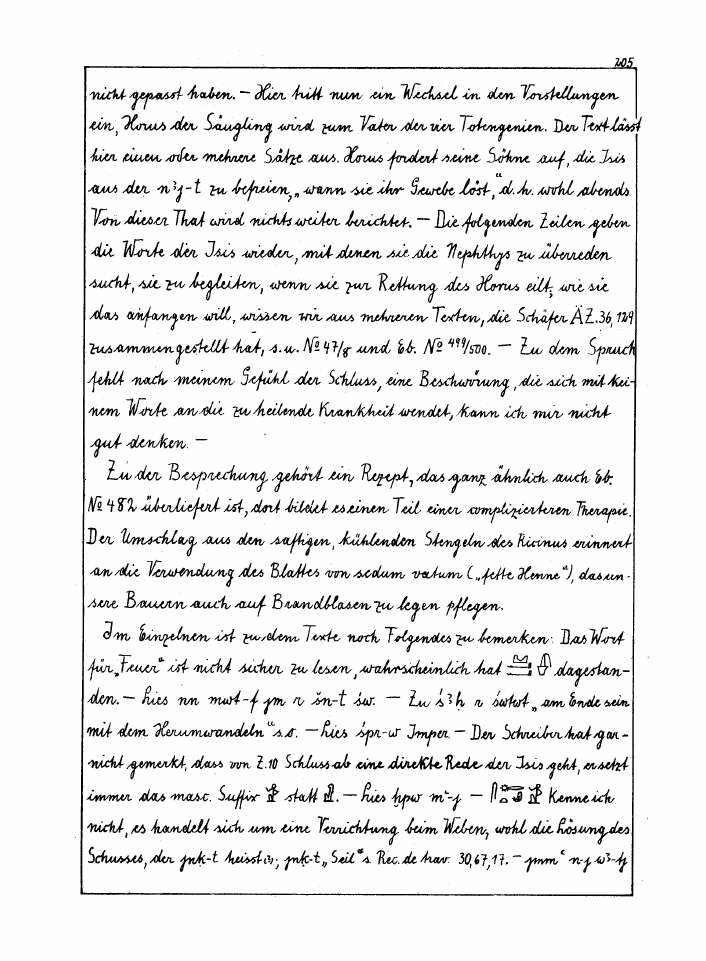 205
nicht gepasst haben. – Hier tritt nun ein Wechsel in den Vorstellungen
ein, Horus der Säugling wird zum Vater der vier Totengenien. Der Text lässt
hier einen oder mehrere Sätze aus. Horus fordert seine Söhne auf, die Isis
aus der nꜣj-t zu befreien, „wann sie ihr Gewebe löst“, d.h. wohl abends.
Von dieser That wird nichts weiter berichtet. – Die folgenden Zeilen geben
die Worte der Isis wieder, mit denen sie die Nephthys zu überreden
sucht, sie zu begleiten, wenn sie zur Rettung des Horus eilt; wie sie
das anfangen will, wissen wir aus mehreren Texten, die Schäfer ÄZ. 36, 129
zusammengestellt hat, s.u. No 47/8 und Eb. No 499/500. – Zu dem Spruch
fehlt nach meinem Gefühl der Schluss, eine Beschwörung, die sich mit kei-
nem Worte an die zu heilende Krankheit wendet, kann ich mir nicht
gut denken. –
Zu der Besprechung gehört ein Rezept, das ganz ähnlich auch Eb.
No 482 überliefert ist, dort bildet es einen Teil einer complizierteren Therapie.
Der Umschlag aus den saftigen, kühlenden Stengeln des Ricinus erinnert
an die Verwendung des Blattes von sedum vatum („fette Henne“), das un-
sere Bauern auch auf Brandblasen zu legen pflegen.
Im Einzelnen ist zu dem Texte noch Folgendes zu bemerken: Das Wort
für „Feuer“ ist nicht sicher zu lesen, wahrscheinlich hat dagestan-
den. – lies nn mwt-f jm r šn-t św. – Zu śꜣḫ r śwtwt „am Ende sein
mit dem Herumwandeln“ s.o. – lies śpr-w Imper. – Der Schreiber hat gar-
nicht gemerkt, dass von Z. 10 Schluss ab eine direkte Rede der Isis geht, ersetzt
immer das masc. Suffix statt . – lies – Kenne ich
nicht, es handelt sich um eine Verrichtung beim Weben, wohl die Lösung des
Schusses, der jnk-t heisst (?); jnk-t „Seil“ s. Rec. de trav. 30, 67, 17. –